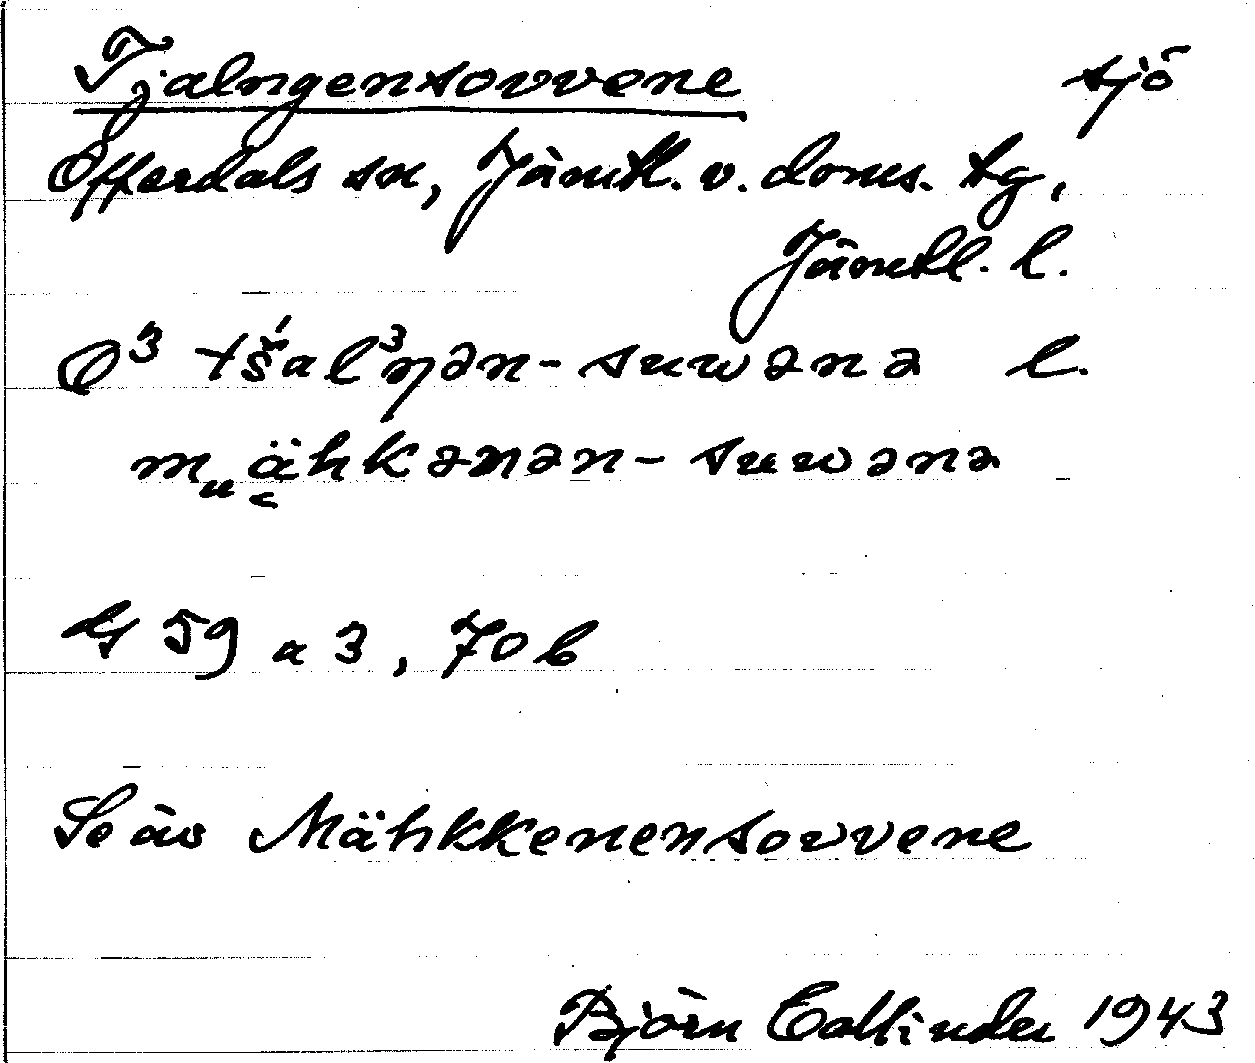 Tjalngensovvene sjö
Offerdals sn, Jämtl. v. doms. tg,
Jämtl. l.
O³ tš́al³ŋən-suwənə l.
mᵤą̈hkənən-suwənə
G 59 a 3, 70 b
Se äv Mähkkenensovvene
Björn Collinder 1943